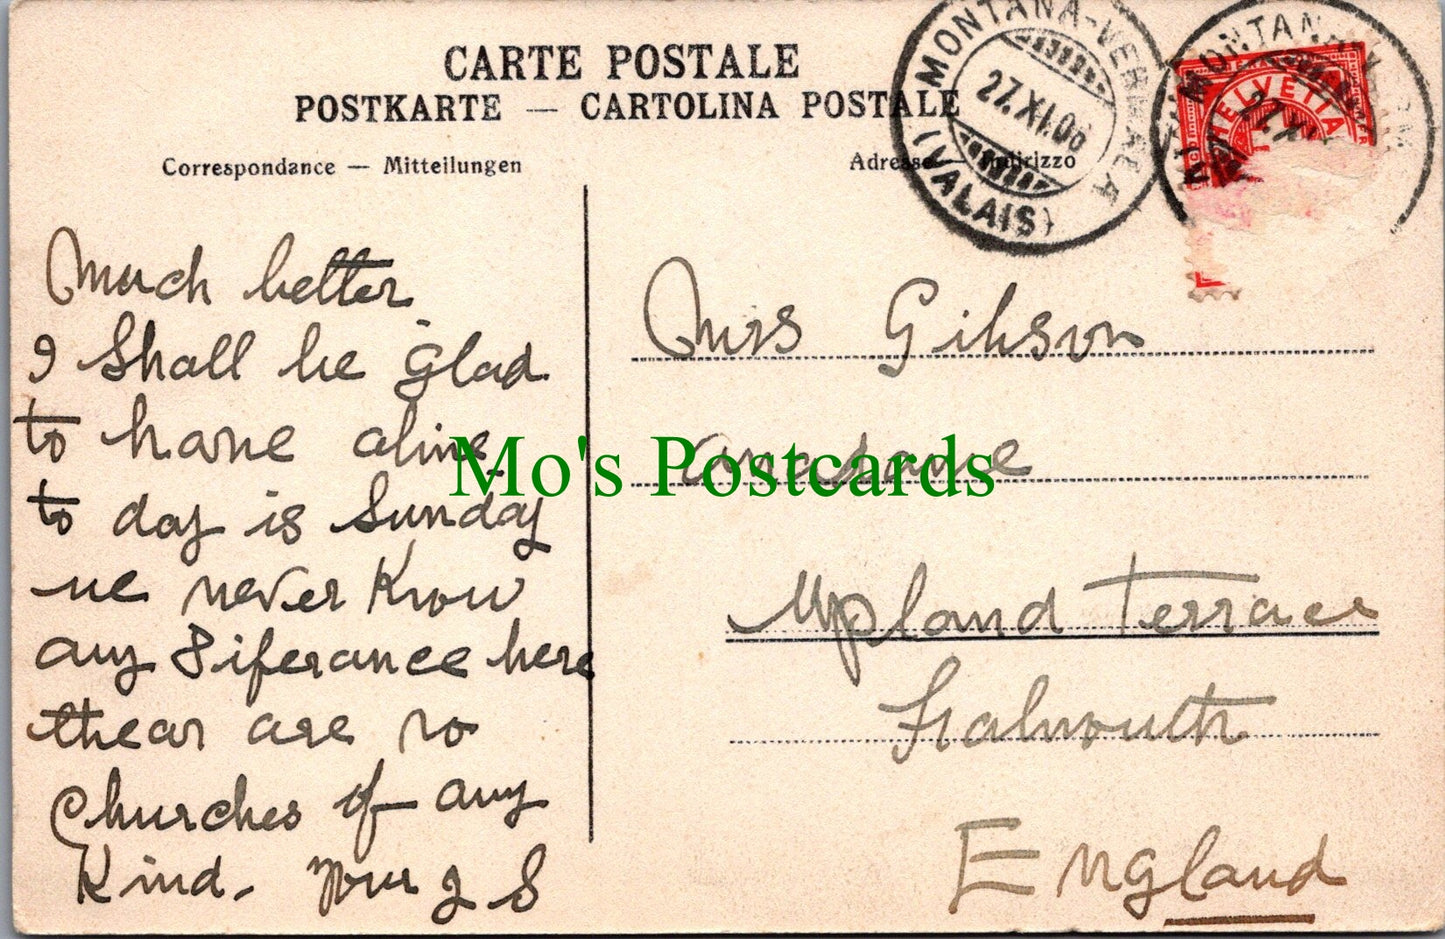 CARTE POSTALE
POSTKARTE — CARTOLINA POSTALE
Correspondance — Mitteilungen
Adresse — Indirizzo
MONTANA-VERMALA
27.XI.06
(VALAIS)
MONTANA
27.XI
HELVETIA
Much better
I Shall be Glad
to hane aline
to day is Sunday
we never Know
any Diferance here
thear are no
Churches of any
Kind. Your J S
Mrs Gibson
Mo's Postcards
Upland Terrace
Falmouth
England